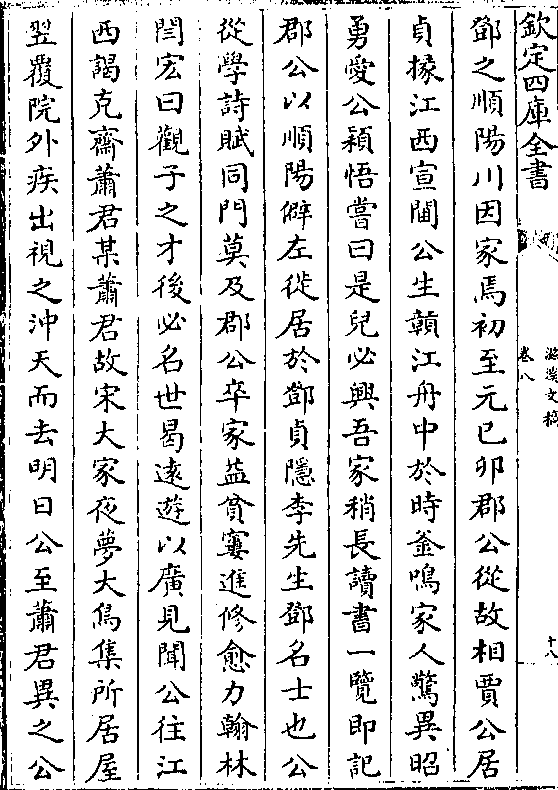 欽定四庫全書
滋溪文稿
卷八
十八
鄧之順陽川因家焉初至元已卯郡公從故相賈公居
貞掾江西宣閫公生贛江舟中於時釜鳴家人驚異昭
勇愛公穎悟嘗曰是兒必興吾家稍長讀書一覽即記
郡公以順陽僻左徙居於鄧貞隱李先生鄧名士也公
從學詩賦同門莫及郡公卒家益貧窶進修愈力翰林
閆宏曰觀子之才後必名世曷遠遊以廣見聞公往江
西謁克齋蕭君某蕭君故宋大家夜夢大鳥集所居屋
翌覆院外疾出視之沖天而去明日公至蕭君異之公